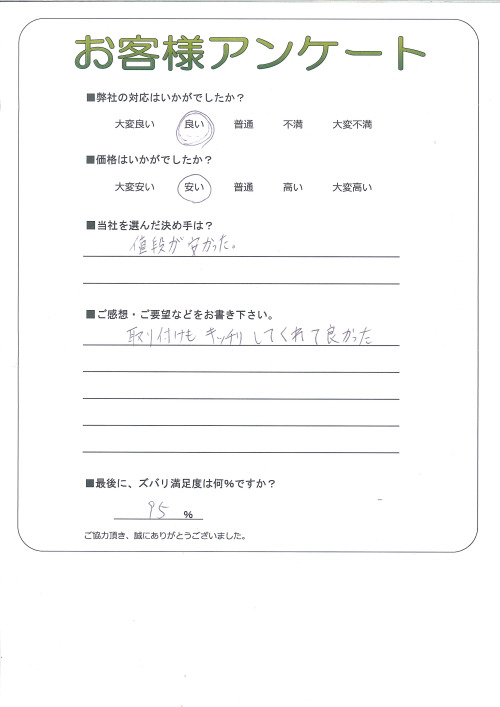 お客様アンケート
■弊社の対応はいかがでしたか？
大変良い 良い 普通 不満 大変不満
■価格はいかがでしたか？
大変安い 安い 普通 高い 大変高い
■当社を選んだ決め手は？
値段が安かった。
■ご感想・ご要望などをお書き下さい。
取り付けもキッチリしてくれて良かった
■最後に、ズバリ満足度は何%ですか？
95 %
ご協力頂き、誠にありがとうございました。